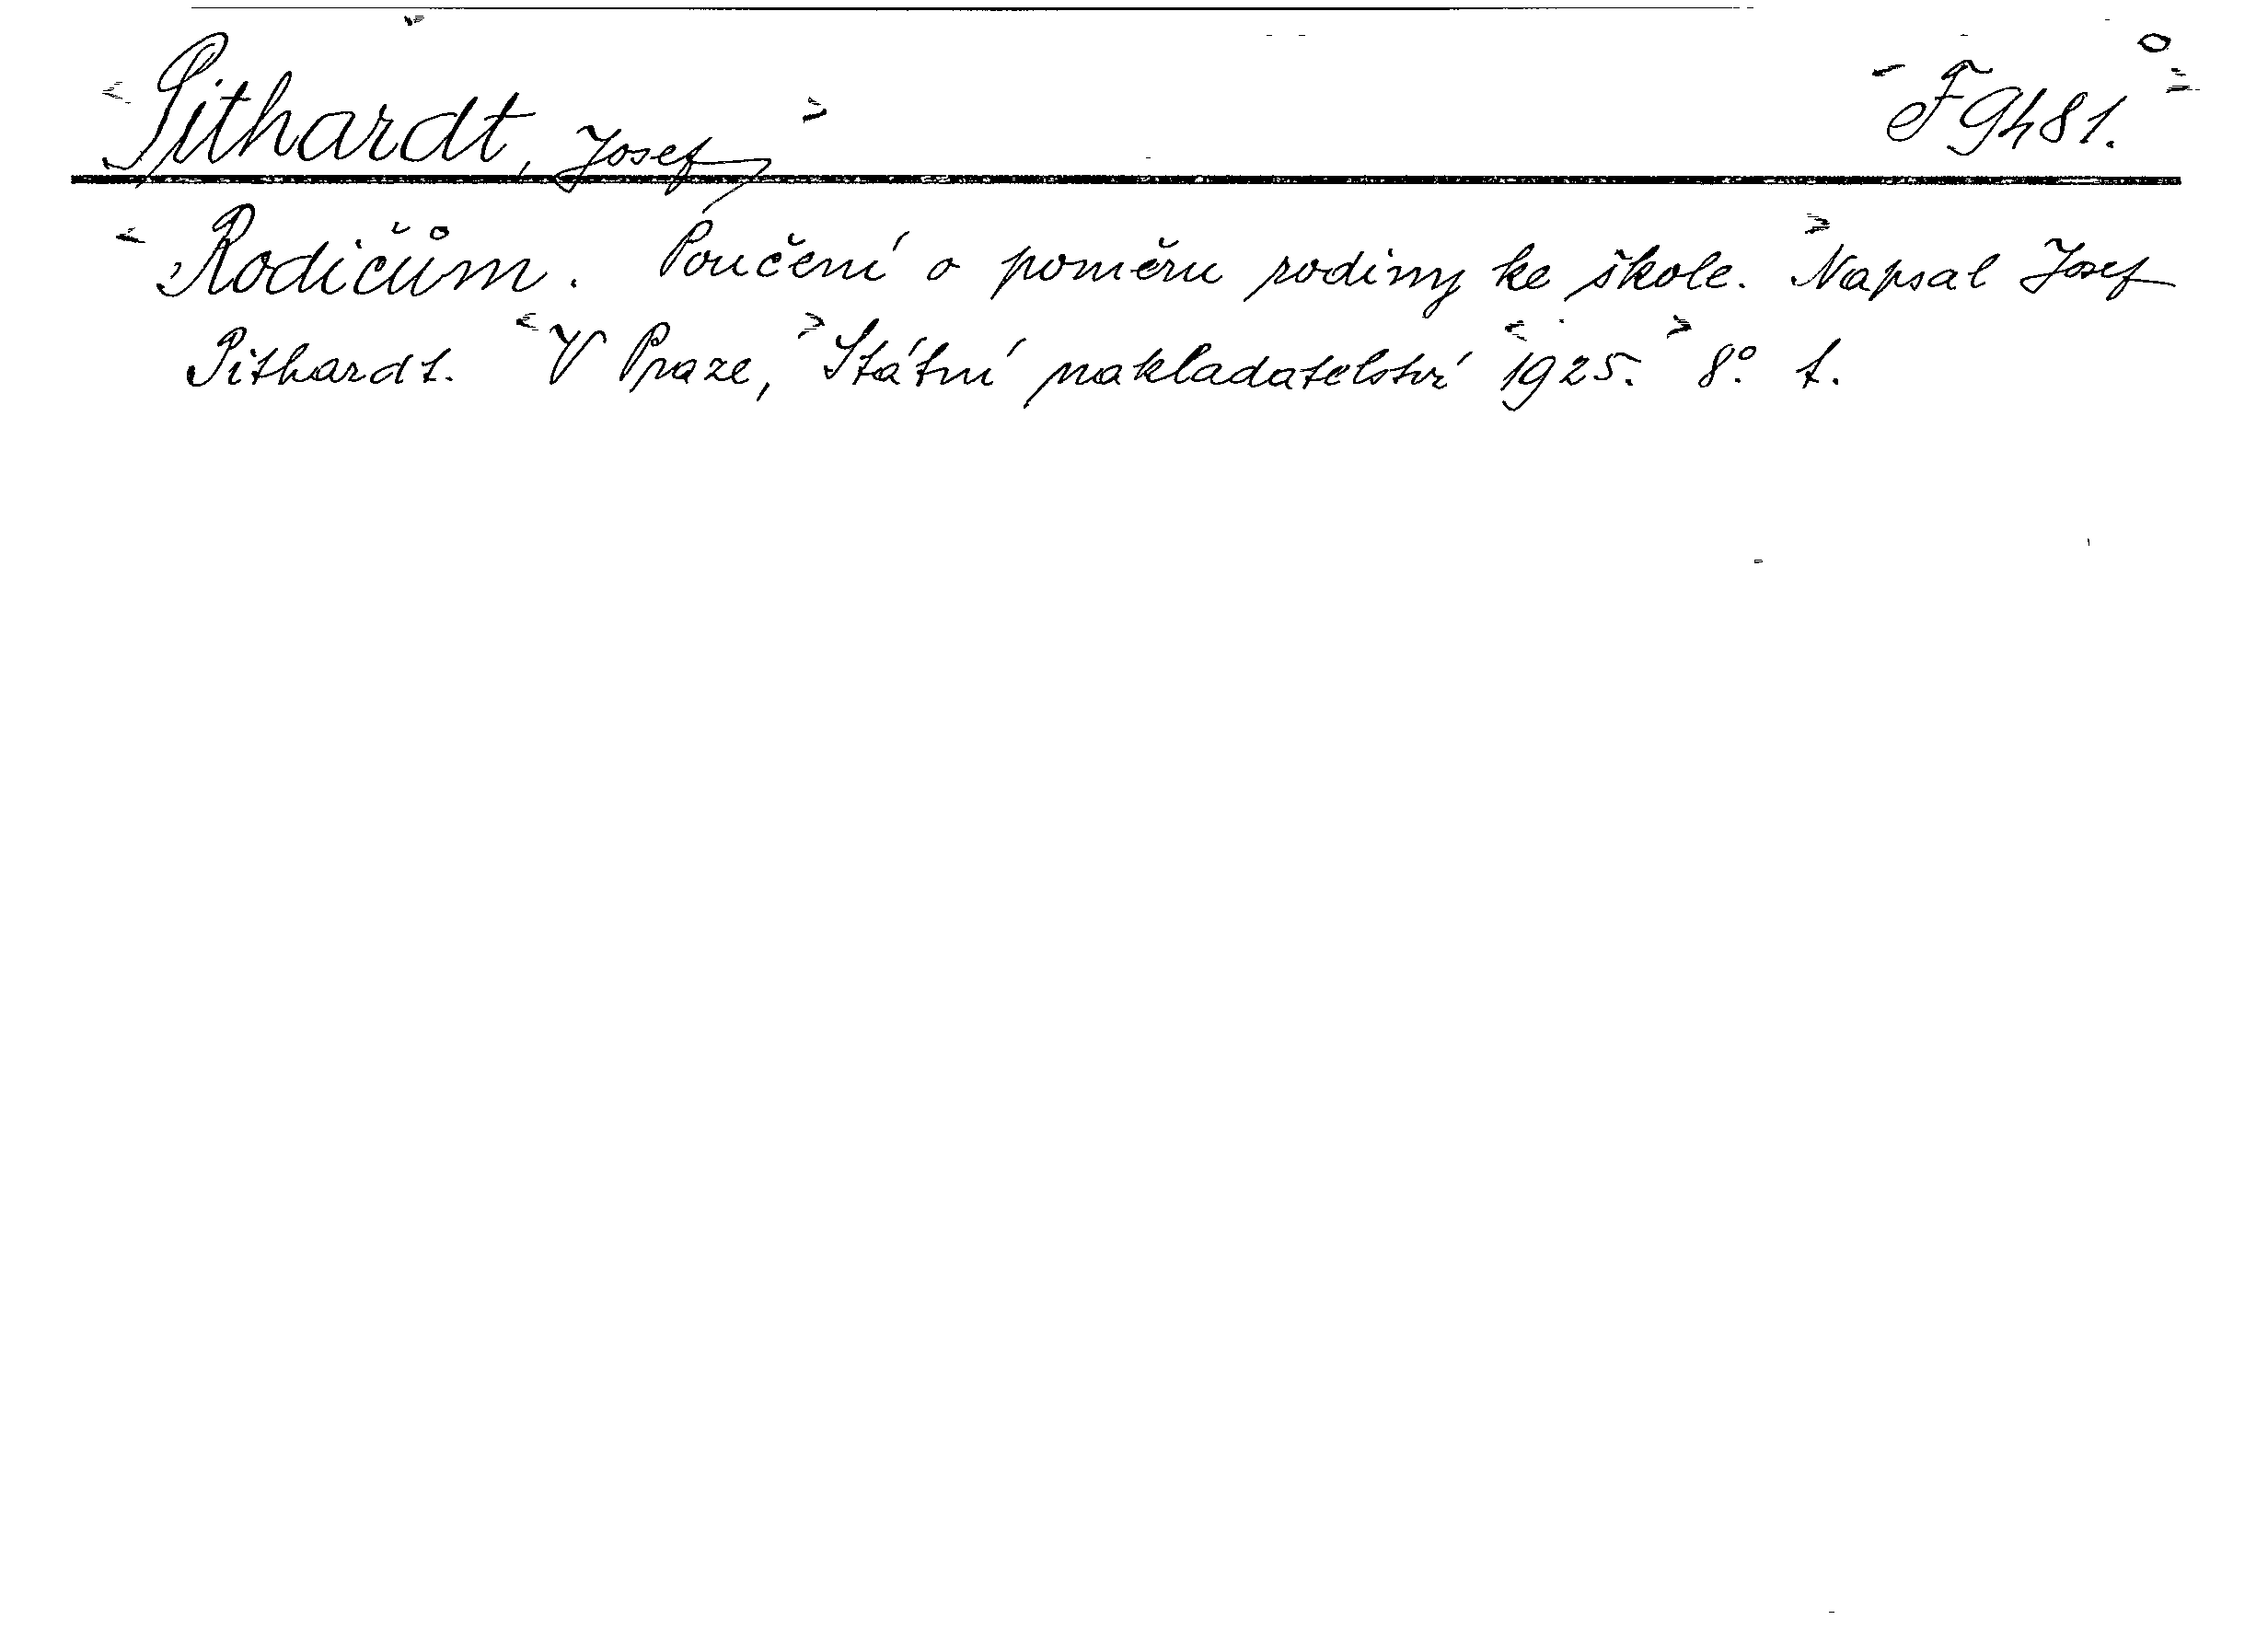 Pithardt, Josef F 9481.
Rodičům. Poučení o poměru rodiny ke škole. Napsal Josef
Pithardt. V Praze, Státní nakladatelství 1925. 8°. t.